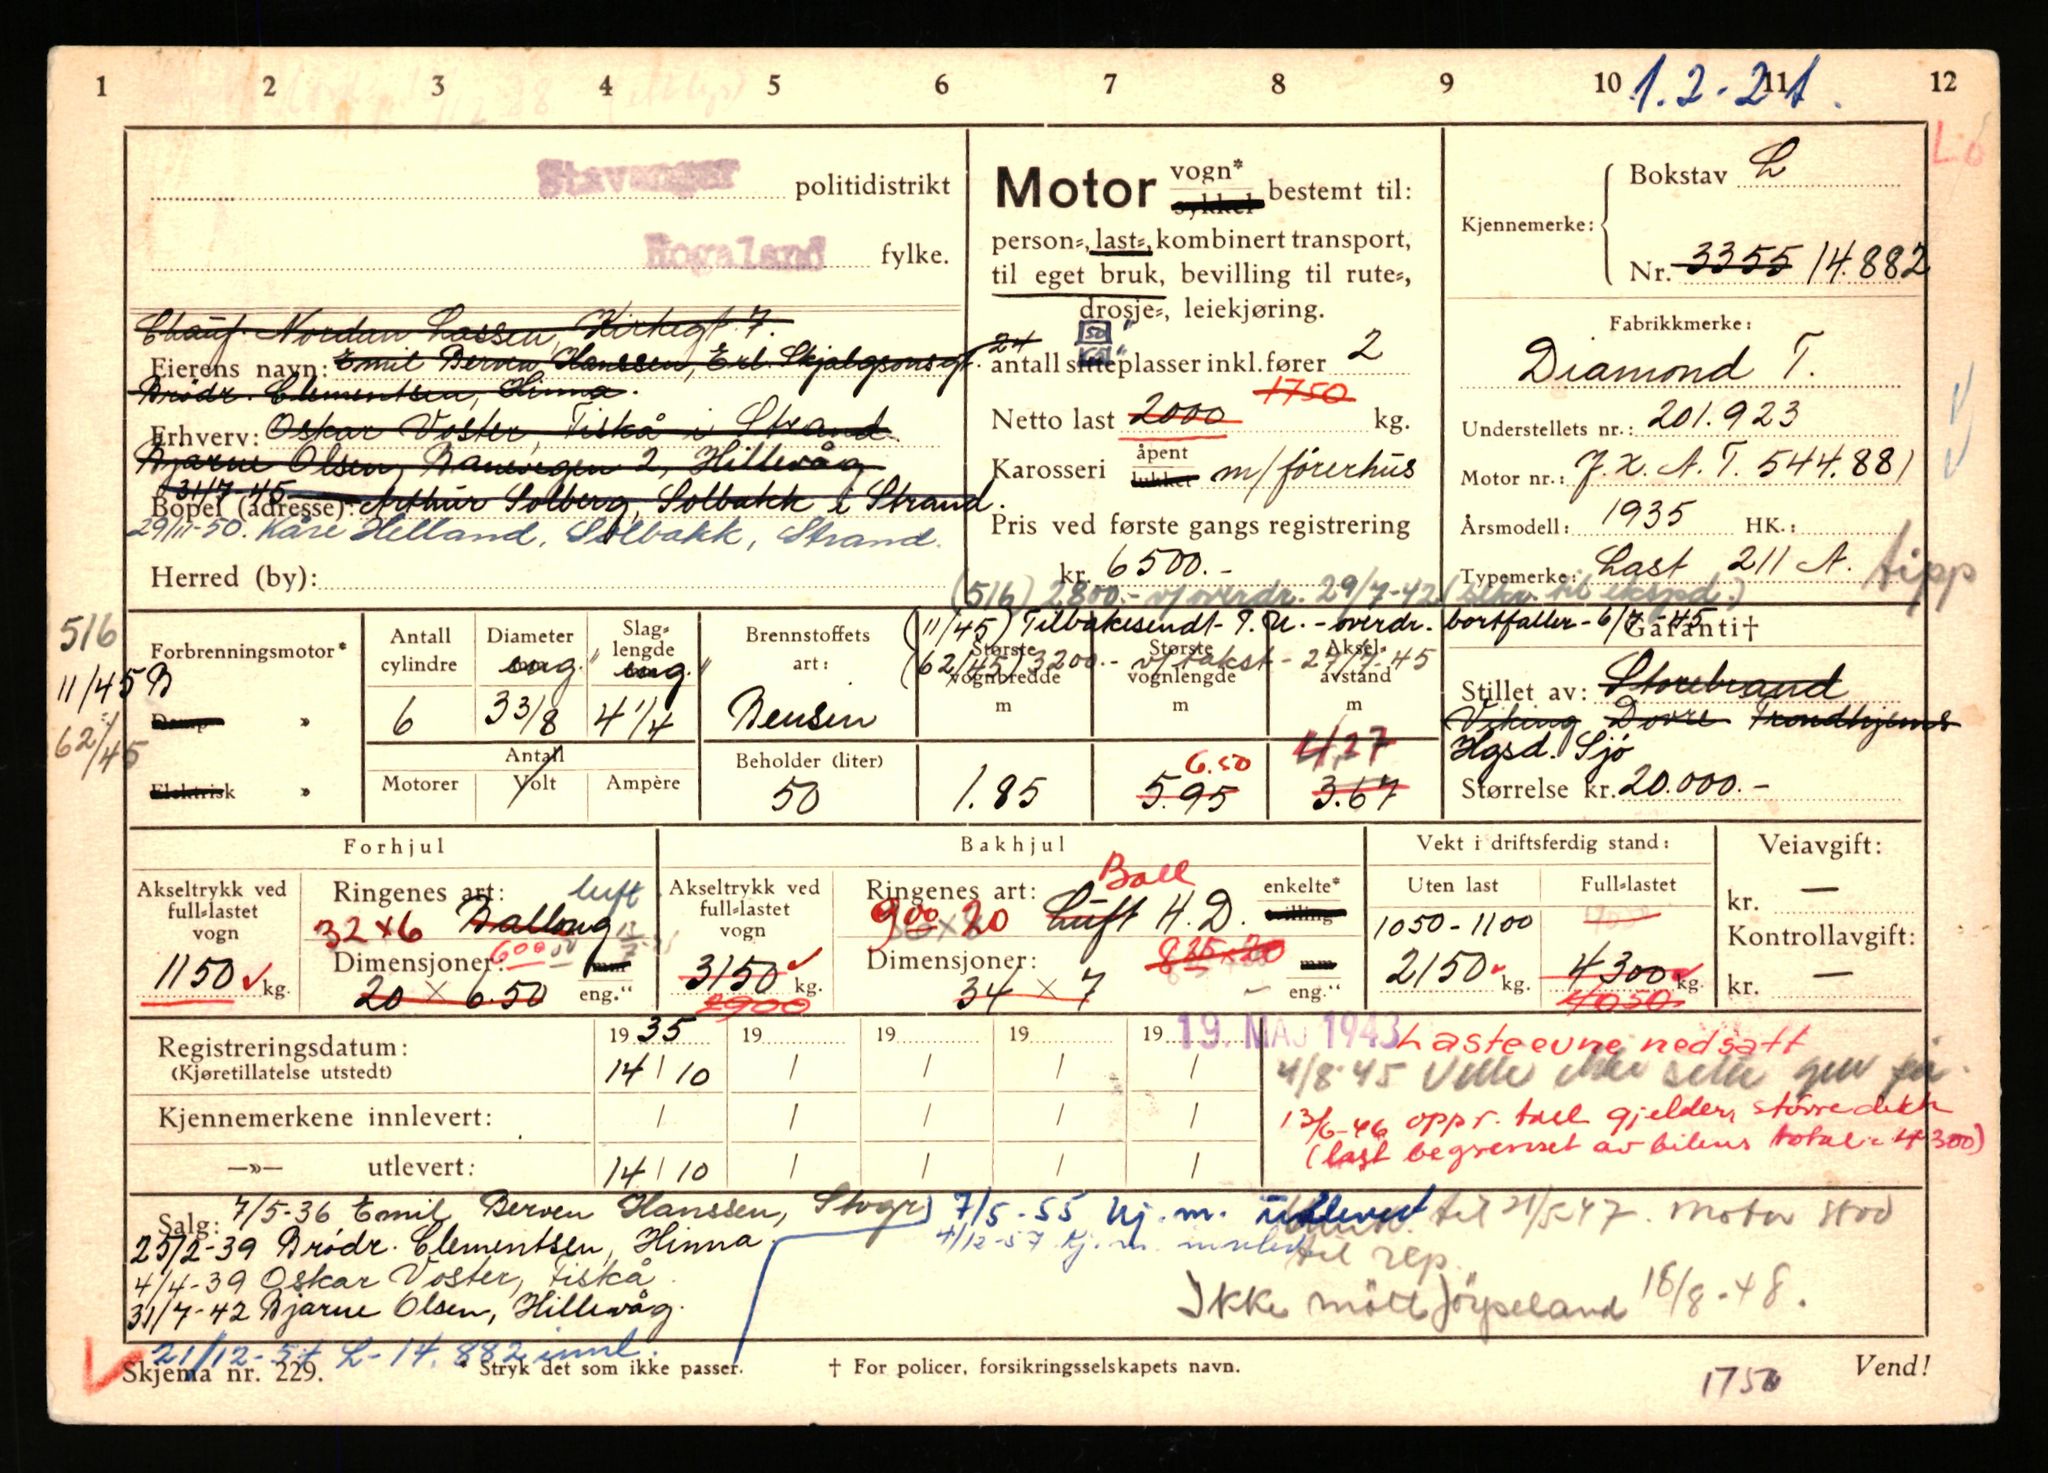 1 2 3 4 5 6 7 8 9 10 11 12
1.2-21.
Stavanger politidistrikt
Rogaland fylke.
Chauf. Nordan Lassen, Kirkegt. 7.
Eierens navn: Emil Berven Hanssen, Erl. Skjalgsonsgt. 24
Brödr. Clementsen, Hinna.
Erhverv: Oskar Voster, Fiskå i Strand.
Bjarne Olsen, Banevegen 2, Hillevåg
31/7-45
Bopel (adresse): Arthur Solberg, Solbakk i Strand.
29/11-50. Kåre Helland, Solbakk, Strand.
Herred (by):
Motor vogn* sykkel bestemt til:
person=, last=, kombinert transport,
til eget bruk, bevilling til rute=,
drosje=, leiekjøring.
50
antall sitteplasser inkl. fører 2
1750
Netto last 2000 kg.
Karosseri åpent lukket m/förerhus
Pris ved første gangs registrering
kr. 6500.-
Bokstav L
Kjennemerke:
Nr. 3355 14.882
Fabrikkmerke:
Diamond T.
Understellets nr.: 201.923
Motor nr.: J.X.A.T. 544.881
Årsmodell: 1935 HK.:
Typemerke: Last 211 A. tipp
(516) 2800.- v/overdr. 29/7-42
(11/45) Tilbakesendt P.N. - overdr. bortfaller - 6/7-45
(62/45) 3200.- v/takst - 27/7-45
516
11/45
62/45
Forbrenningsmotor* B
Damp »
Elektrisk »
Antall cylindre 6
Diameter eng. " 3 3/8
Slag=lengde eng. " 4 1/4
Antall
Motorer Volt Ampère
Brennstoffets art: Bensin
Beholder (liter) 50
Største vognbredde m 1.85
Største vognlengde m 6.50 5.95
Aksel=avstand m 4,27 3.67
Garanti†
Stillet av: Storebrand
Viking Dovre Trondhjems
Hgsd. Sjö
Størrelse kr. 20.000.-
Forhjul
Akseltrykk ved full=lastet vogn
1150 kg.
Ringenes art: luft
32x6 Ballong
Dimensjoner: 600
20 x 6.50 mm eng."
Bakhjul
Akseltrykk ved full=lastet vogn
3150 kg.
2900
Ringenes art: Ball
900 20 Luft H.D. enkelte* tvilling
Dimensjoner: 825x20
34 x 7 mm eng."
Vekt i driftsferdig stand:
Uten last Full=lastet
1050-1100
2150 kg. 4300 kg.
4050
Veiavgift:
kr. —
Kontrollavgift:
kr. —
Registreringsdatum: 19 35 19 19 19 19
(Kjøretillatelse utstedt) 14 / 10 / / / /
Kjennemerkene innlevert: / / / / /
—»— utlevert: 14 / 10 / / / /
19. MAI 1943 Lasteevne nedsatt
4/8-45
13/6-46 oppr. tall gjelder, større dekk
(last begrenset av bilens total = 4300)
Salg: 7/5-36 Emil Berven Hanssen, Stvgr
25/2-39 Brödr. Clementsen, Hinna.
4/4-39 Oskar Voster, Fiskå.
31/7-42 Bjarne Olsen, Hillevåg.
21/12-54 L-14.882 innl.
7/5-55 kj.m. utlevert
4/12-57 kj.m. innlev
til 21/5-47. Motor stod
til rep.
Ikke mött Jörpeland 18/8-48.
Skjema nr. 229. * Stryk det som ikke passer. † For policer, forsikringsselskapets navn. Vend!
1750